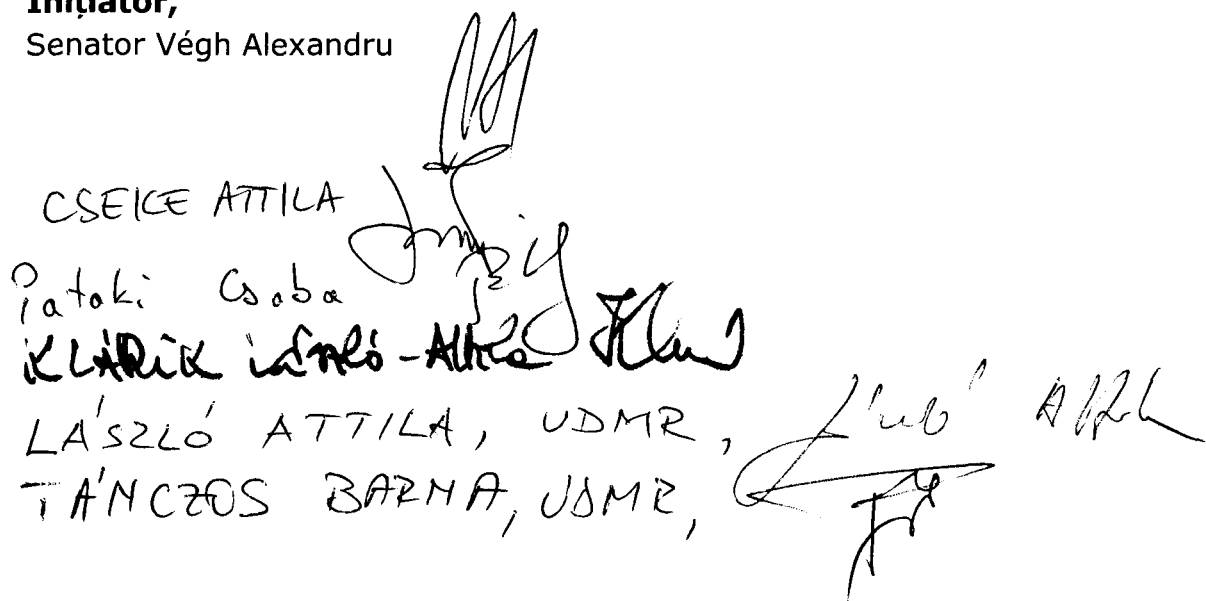 Inițiator,
Senator Végh Alexandru
CSEKE ATTILA
Pataki Csaba
KLÁRIK LÁSZLÓ-Attila
LÁSZLÓ ATTILA, UDMR, László Attila
TÁNCZOS BARNA, UDMR,